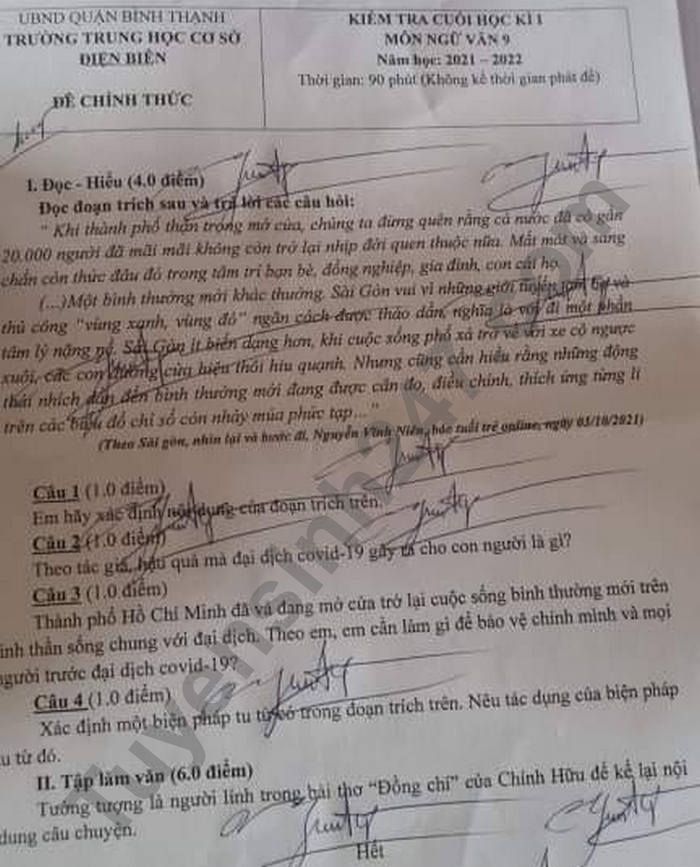 UBND QUẬN BÌNH THẠNH
TRƯỜNG TRUNG HỌC CƠ SỞ
ĐIỆN BIÊN
ĐỀ CHÍNH THỨC
KIỂM TRA CUỐI HỌC KÌ I
MÔN NGỮ VĂN 9
Năm học: 2021 – 2022
Thời gian: 90 phút (Không kể thời gian phát đề)
I. Đọc - Hiểu (4.0 điểm)
Đọc đoạn trích sau và trả lời các câu hỏi:
" Khi thành phố thận trọng mở cửa, chúng ta đừng quên rằng cả nước đã có gần
20.000 người đã mãi mãi không còn trở lại nhịp đời quen thuộc nữa. Mất mát và sang
chấn còn thức đâu đó trong tâm trí bạn bè, đồng nghiệp, gia đình, con cái họ.
(...)Một bình thường mới khác thường. Sài Gòn vui vì những giới tuyến tạm bợ và
thủ công "vùng xanh, vùng đỏ" ngăn cách được tháo dần, nghĩa là vợi đi một phần
tâm lý nặng nề. Sài Gòn ít biến dạng hơn, khi cuộc sống phố xá trở về với xe cộ ngược
xuôi, các con đường cửa hiệu thôi hiu quạnh. Nhưng cũng cần hiểu rằng những động
thái nhích dần đến bình thường mới đang được cân đo, điều chỉnh, thích ứng từng li
trên các biểu đồ chỉ số còn nhảy múa phức tạp... "
(Theo Sài gòn, nhìn lại và bước đi, Nguyễn Vĩnh Niên, báo tuổi trẻ online, ngày 03/10/2021)
Câu 1 (1.0 điểm)
Em hãy xác định nội dung của đoạn trích trên.
Câu 2 (1.0 điểm)
Theo tác giả, hậu quả mà đại dịch covid-19 gây ra cho con người là gì?
Câu 3 (1.0 điểm)
Thành phố Hồ Chí Minh đã và đang mở cửa trở lại cuộc sống bình thường mới trên
tinh thần sống chung với đại dịch. Theo em, em cần làm gì để bảo vệ chính mình và mọi
người trước đại dịch covid-19?
Câu 4 (1.0 điểm)
Xác định một biện pháp tu từ có trong đoạn trích trên. Nêu tác dụng của biện pháp
tu từ đó.
II. Tập làm văn (6.0 điểm)
Tưởng tượng là người lính trong bài thơ "Đồng chí" của Chính Hữu để kể lại nội
dung câu chuyện.
Hết
Tuyensinh247.com